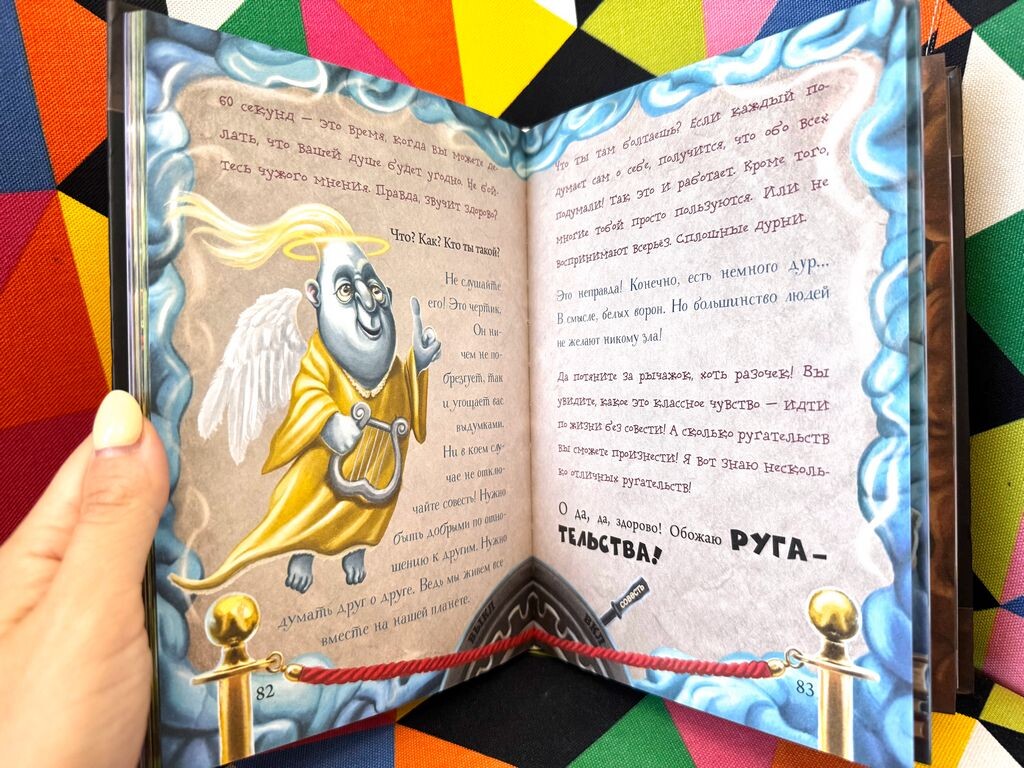 60 секунд — это время, когда вы можете де-
лать, что вашей душе будет угодно. Не бой-
тесь чужого мнения. Правда, звучит здорово?
Что? Как? Кто ты такой?
Не слушайте
его! Это чертик.
Он ни-
чем не по-
брезгует, так
и угощает вас
выдумками.
Ни в коем слу-
чае не отклю-
чайте совесть! Нужно
быть добрыми по отно-
шению к другим. Нужно
думать друг о друге. Ведь мы живем все
вместе на нашей планете.
ВЫКЛ
82
Что ты там болтаешь? Если каждый по-
думает сам о себе, получится, что обо всех
подумали! Так это и работает. Кроме того,
многие тобой просто пользуются. Или не
воспринимают всерьез. Сплошные дурни.
Это неправда! Конечно, есть немного дур...
В смысле, белых ворон. Но большинство людей
не желают никому зла!
Да потяните за рычажок, хоть разочек! Вы
увидите, какое это классное чувство — идти
по жизни без совести! А сколько ругательств
вы сможете произнести! Я вот знаю несколь-
ко отличных ругательств!
О да, да, здорово! Обожаю РУГА-
ТЕЛЬСТВА!
СОВЕСТЬ
ВКЛ
83